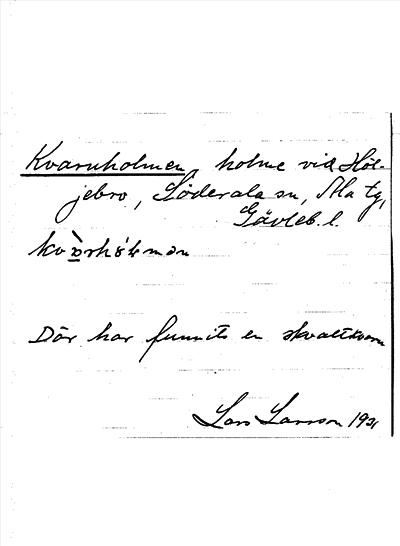 Kvarnholmen, holme vid Höl-
jebro, Söderala sn, Ala tg,
Gävleb. l.
Där har funnits en skvaltkvarn
Lars Larsson